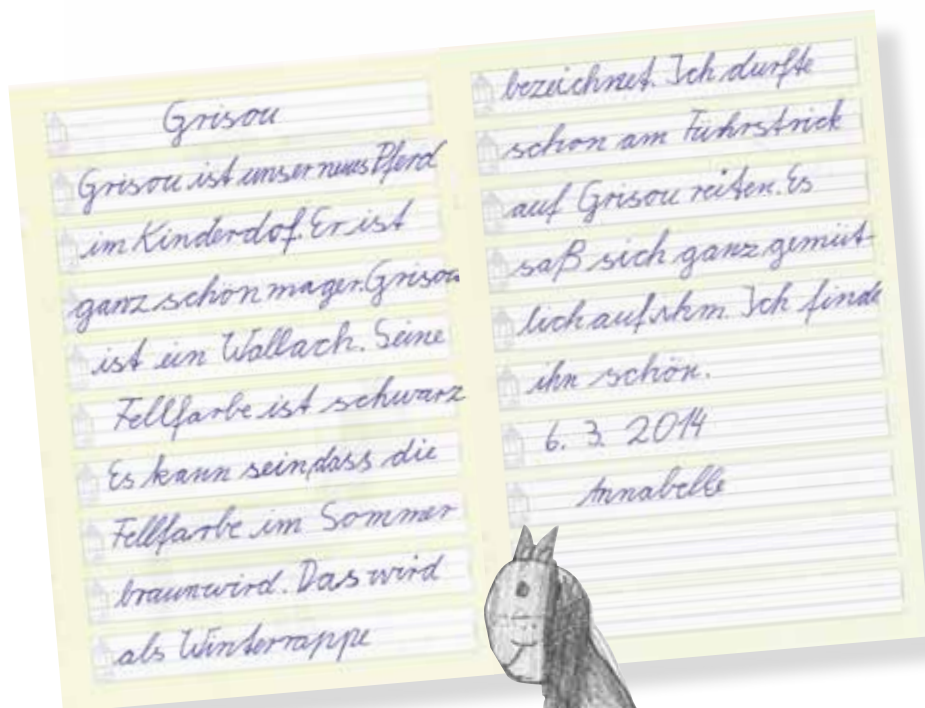 Grisou
Grisou ist unser neues Pferd
im Kinderdof. Er ist
ganz schön mager. Grisou
ist ein Wallach. Seine
Fellfarbe ist schwarz
Es kann sein, dass die
Fellfarbe im Sommer
braun wird. Das wird
als Winterrappe
bezeichnet. Ich durfte
schon am Führstrick
auf Grisou reiten. Es
saß sich ganz gemüt-
lich auf ihm. Ich finde
ihn schön.
6. 3. 2014
Annabelle